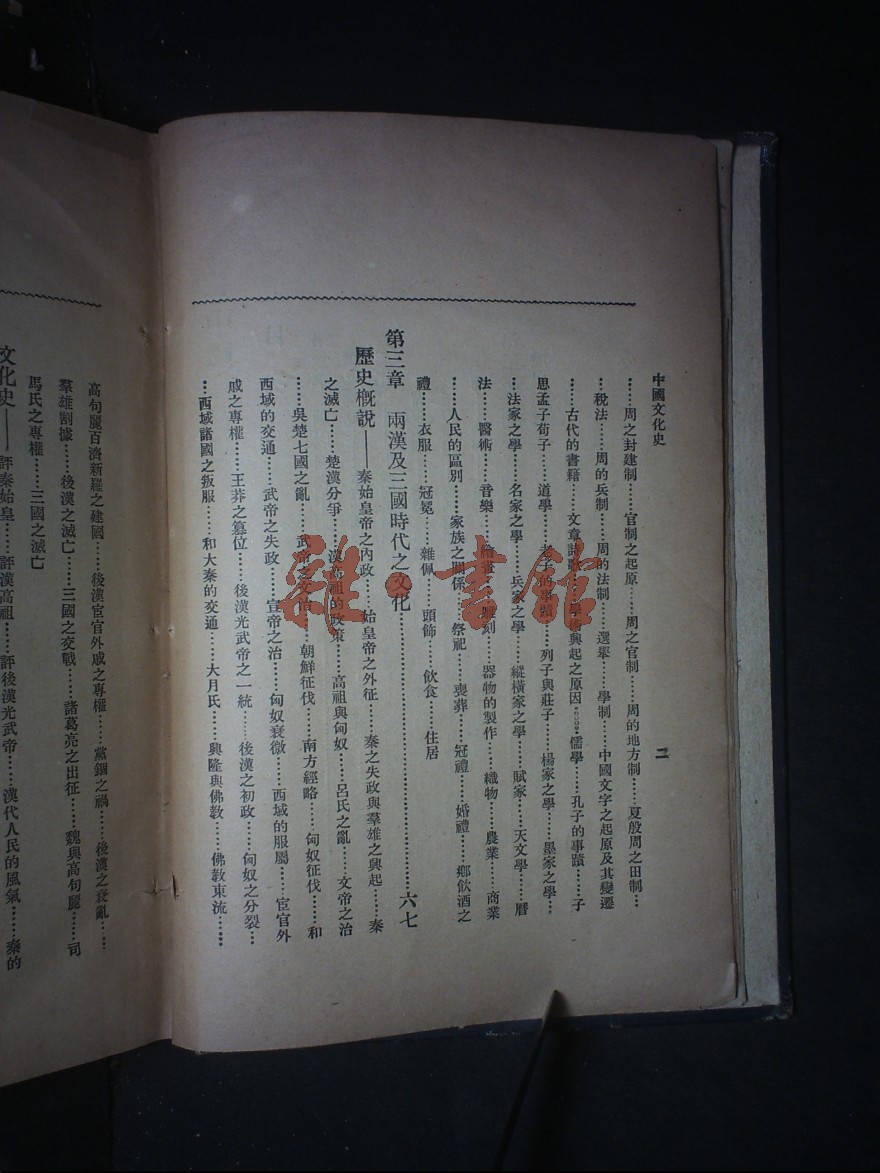 中國文化史
二
……周之封建制……官制之起原……周之官制……周的地方制……夏殷周之田制…
…稅法……周的兵制……周的法制……選舉……學制……中國文字之起原及其變遷
……古代的書籍……文章詩歌……學術興起之原因……儒學……孔子的事蹟……子
思孟子荀子……道學……老子的事蹟……列子與莊子……楊家之學……墨家之學…
…法家之學……名家之學……兵家之學……縱橫家之學……賦家……天文學……曆
法……醫術……音樂……繪畫……雕刻……器物的製作……織物……農業……商業
……人民的區別……家族之關係……祭祀……喪葬……冠禮……婚禮……鄉飲酒之
禮……衣服……冠冕……雜佩……頭飾……飲食……住居
第三章 兩漢及三國時代之文化……六七
歷史概說——秦始皇帝之內政……始皇帝之外征……秦之失政與羣雄之興起……秦
之滅亡……楚漢分爭……漢高祖的政策……高祖與匈奴……呂氏之亂……文帝之治
……吳楚七國之亂……武帝之文治……朝鮮征伐……南方經略……匈奴征伐……和
西域的交通……武帝之失政……宣帝之治……匈奴衰微……西域的服屬……宦官外
戚之專權……王莽之篡位……後漢光武帝之一統……後漢之初政……匈奴之分裂…
…西域諸國之叛服……和大秦的交通……大月氏……興隆與佛教……佛教東流……
高句麗百濟新羅之建國……後漢宦官外戚之專權……黨錮之禍……後漢之衰亂……
羣雄割據……後漢之滅亡……三國之交戰……諸葛亮之出征……魏與高句麗……司
馬氏之專權……三國之滅亡
文化史——評秦始皇……評漢高祖……評後漢光武帝……漢代人民的風氣……秦的
雜·書館